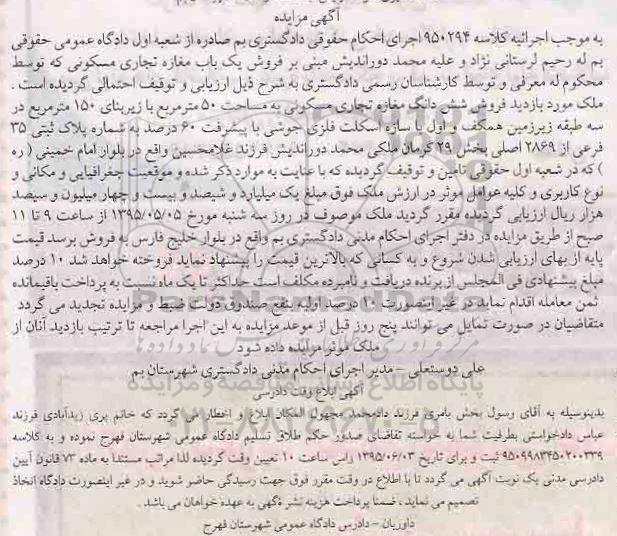 آگهی مزایده
به موجب اجرائیه کلاسه ۹۵۰۲۹۴ اجرای احکام حقوقی دادگستری بم صادره از شعبه اول دادگاه عمومی حقوقی
بم له رحیم لرستانی نژاد و علیه محمد دوراندیش مبنی بر فروش یک باب مغازه تجاری مسکونی که توسط
محکوم له معرفی و توسط کارشناسان رسمی دادگستری به شرح ذیل ارزیابی و توقیف احتمالی گردیده است .
ملک مورد بازدید فروش شش دانگ مغازه تجاری مسکونی به مساحت ۵۰ مترمربع با زیربنای ۱۵۰ مترمربع در
سه طبقه زیرزمین همکف و اول با سازه اسکلت فلزی جوشی با پیشرفت ۶۰ درصد به شماره پلاک ثبتی ۳۵
فرعی از ۲۸۶۹ اصلی بخش ۲۹ کرمان ملکی محمد دوراندیش فرزند غلامحسین واقع در بلوار امام خمینی ( ره
) که در شعبه اول حقوقی تامین و توقیف گردیده که با عنایت به موارد ذکر شده و موقعیت جغرافیایی و مکانی و
نوع کاربری و کلیه عوامل موثر در ارزش ملک فوق مبلغ یک میلیارد و شیصد و بیست و چهار میلیون و سیصد
هزار ریال ارزیابی گردیده مقرر گردید ملک موصوف در روز سه شنبه مورخ ۱۳۹۵/۰۵/۰۵ از ساعت ۹ تا ۱۱
صبح از طریق مزایده در دفتر اجرای احکام مدنی دادگستری بم واقع در بلوار خلیج فارس به فروش برسد قیمت
پایه از بهای ارزیابی شدن شروع و به کسانی که بالاترین قیمت را پیشنهاد نماید فروخته خواهد شد ۱۰ درصد
مبلغ پیشنهادی فی المجلس از برنده دریافت و نامبرده مکلف است حداکثر تا یک ماه نسبت به پرداخت باقیمانده
ثمن معامله اقدام نماید در غیر اینصورت ۱۰ درصد اولیه بنفع صندوق دولت ضبط و مزایده تجدید می گردد
متقاضیان در صورت تمایل می توانند پنج روز قبل از موعد مزایده به این اجرا مراجعه تا ترتیب بازدید آنان از
ملک موثر مزایده داده شود
علی دوستعلی – مدیر اجرای احکام مدنی دادگستری شهرستان بم
آگهی ابلاغ وقت دادرسی
بدینوسیله به آقای رسول بخش بامری فرزند دادمحمد مجهول المکان ابلاغ و اخطار می گردد که خانم پری زیدآبادی فرزند
عباس دادخواستی بطرفیت شما به خواسته تقاضای صدور حکم طلاق تسلیم دادگاه عمومی شهرستان فهرج نموده و به کلاسه
۹۵۰۹۹۸۳۴۵۰۲۰۰۳۳۹ ثبت و برای تاریخ ۱۳۹۵/۰۶/۰۳ راس ساعت ۱۰ تعیین وقت گردیده لذا مراتب مستندا به ماده ۷۳ قانون آیین
دادرسی مدنی یک نوبت آگهی می گردد تا با اطلاع در وقت مقرر فوق جهت رسیدگی حاضر شوید و در غیر اینصورت دادگاه اتخاذ
تصمیم می نماید ، ضمنا پرداخت هزینه نشر آگهی به عهده خواهان می باشد .
داوریان – دادرس دادگاه عمومی شهرستان فهرج